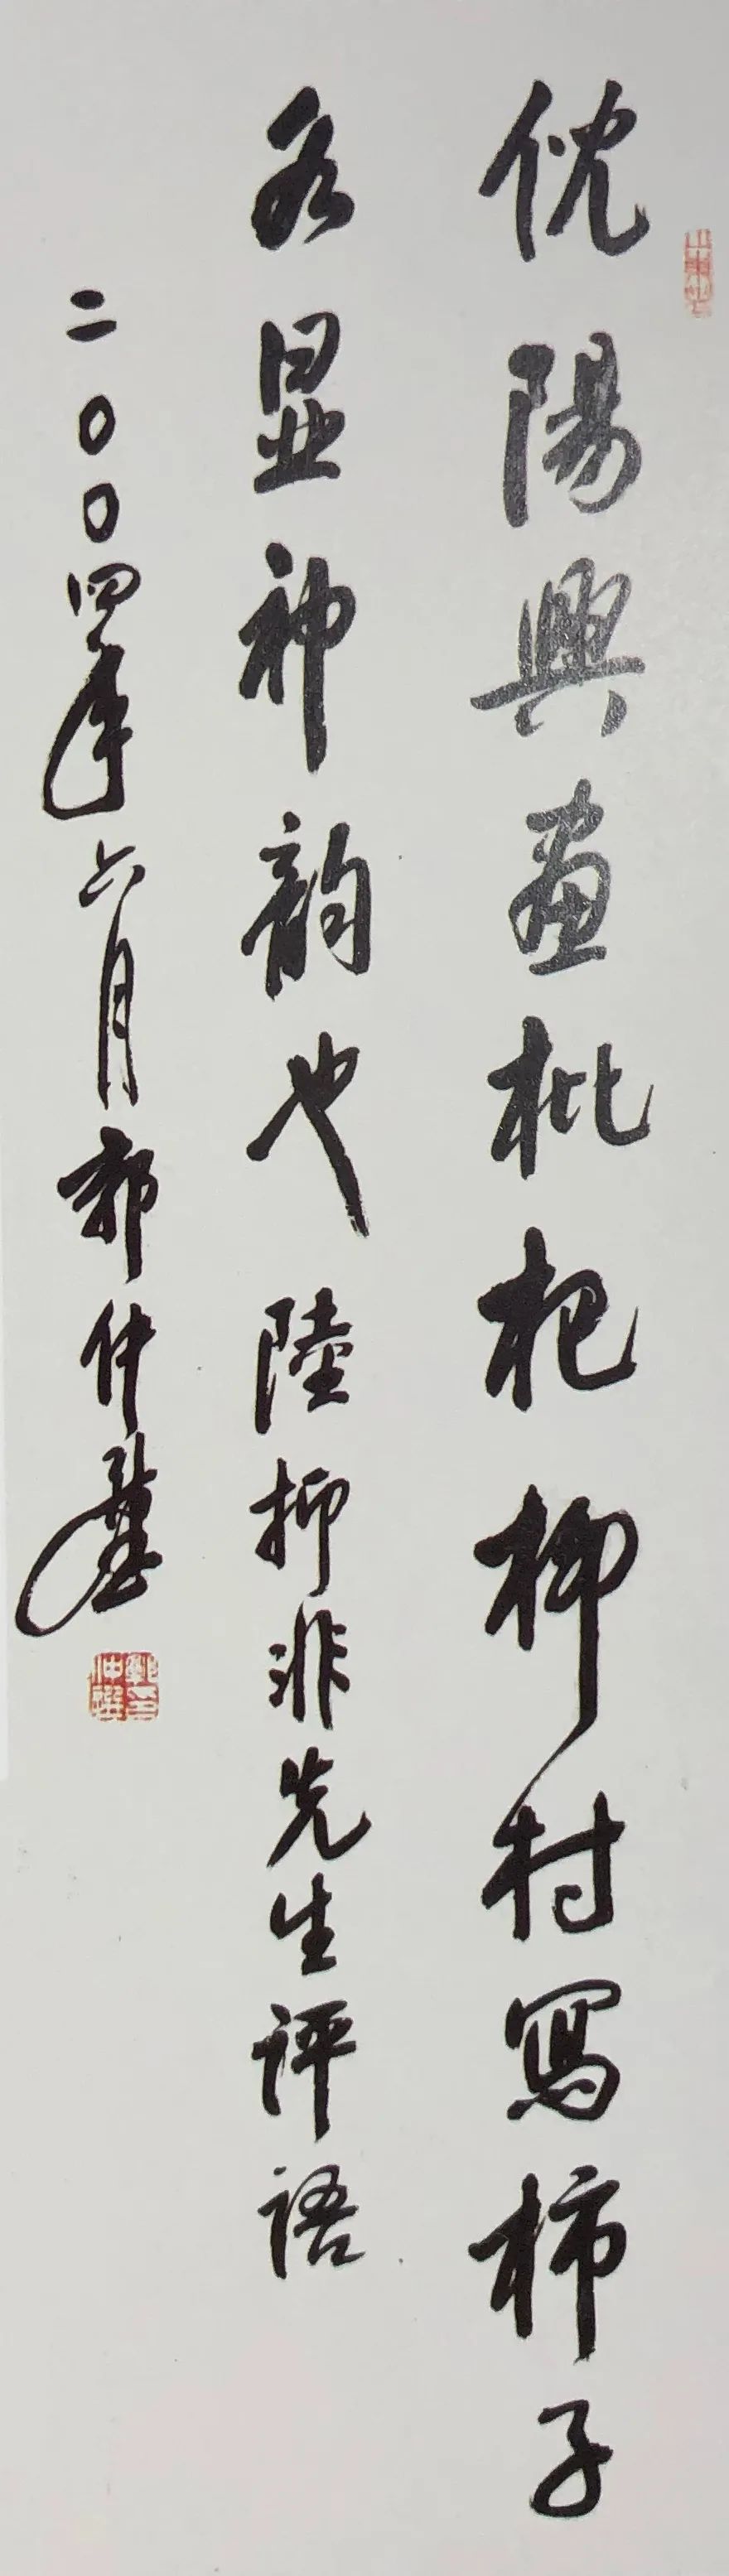 忱陽興畫枇杷柳村寫柿子
各显神韵也陸抑非先生評語
二〇〇四年六月郭仲選
郭仲選印